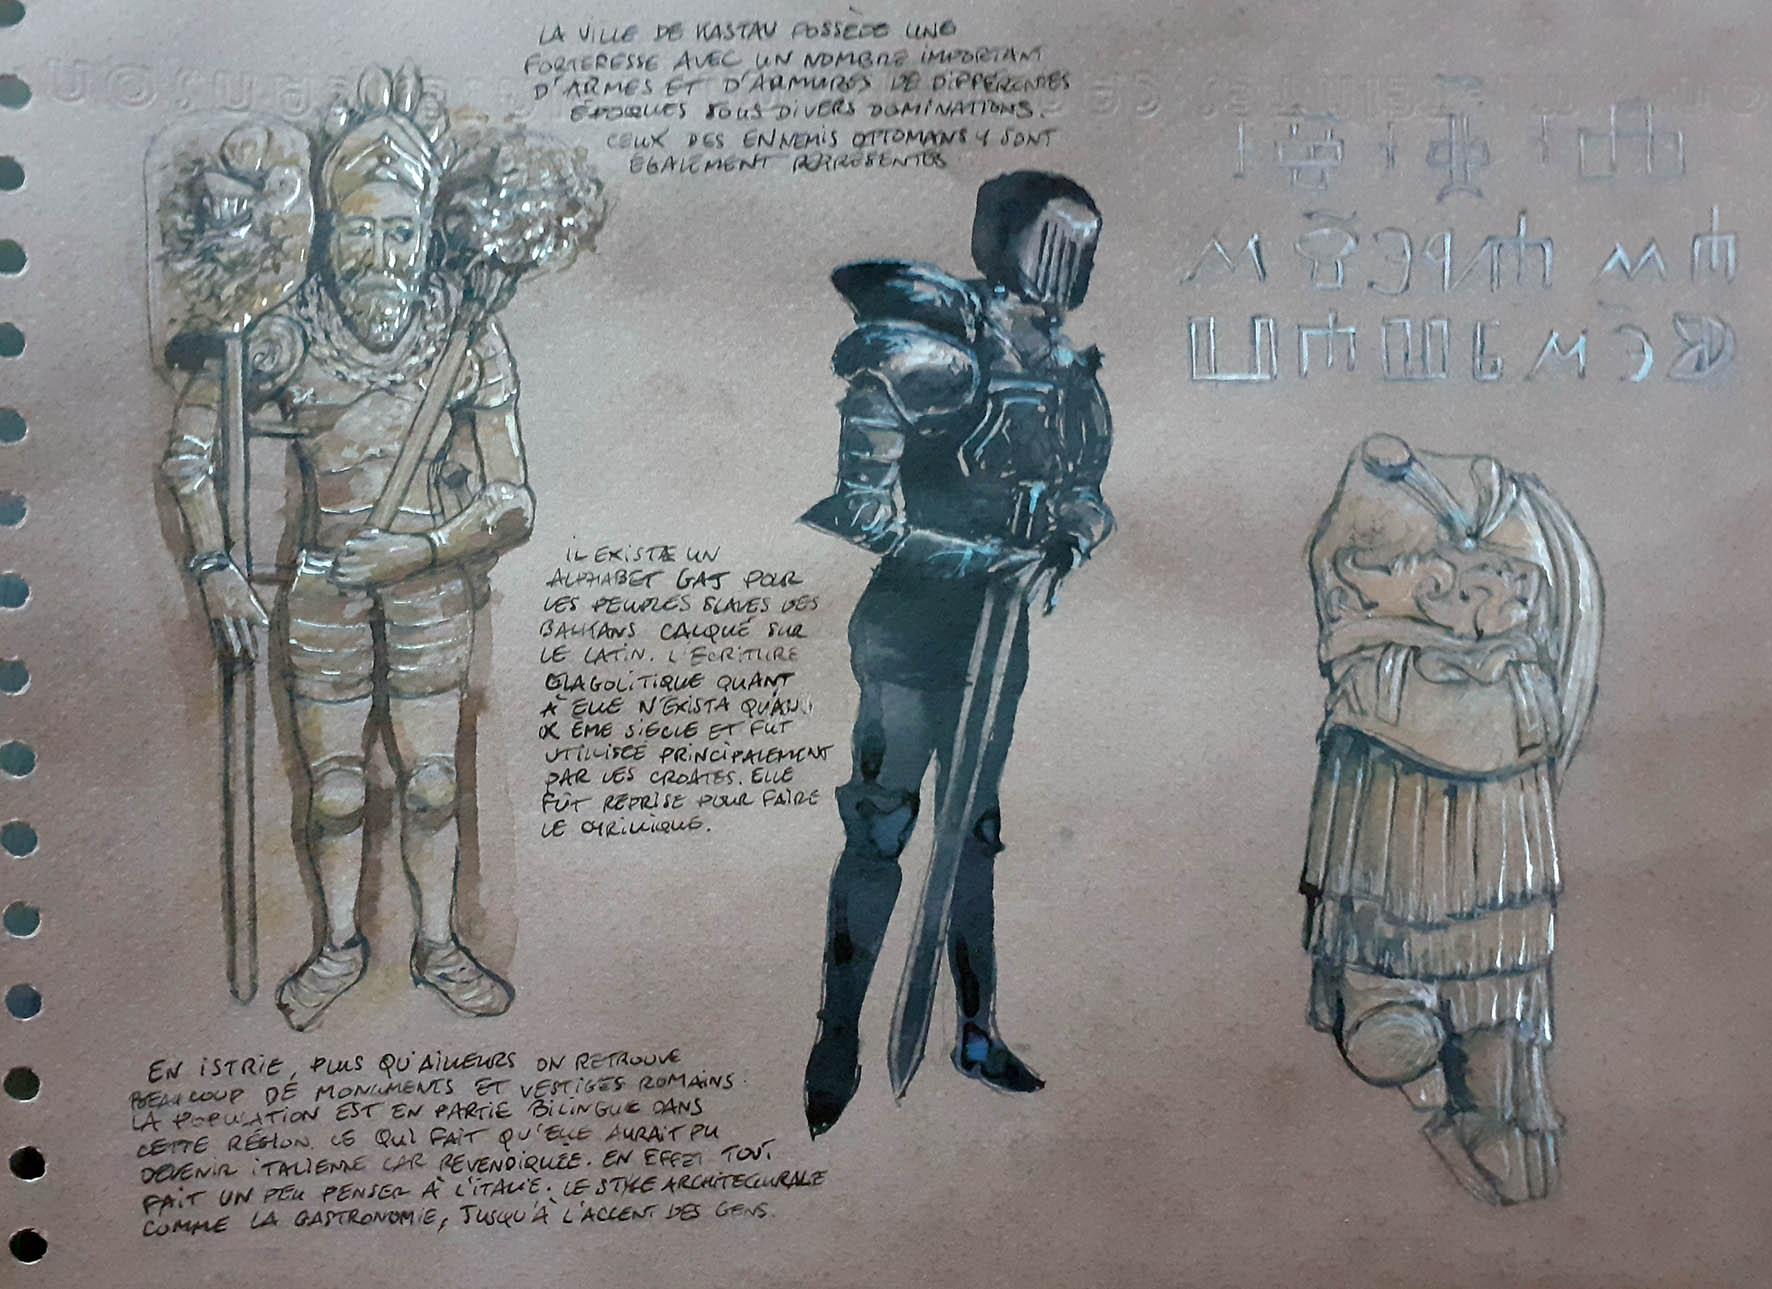 LA VILLE DE KASTAV POSSÈDE UNE
FORTERESSE AVEC UN NOMBRE IMPORTANT
D'ARMES ET D'ARMURES DE DIFFÉRENTES
ÉPOQUES SOUS DIVERS DOMINATIONS.
CEUX DES ENNEMIS OTTOMANS Y SONT
ÉGALEMENT REPRÉSENTÉS
IL EXISTE UN
ALPHABET GAJ POUR
LES PEUPLES SLAVES DES
BALKANS CALQUÉ SUR
LE LATIN. L'ÉCRITURE
GLAGOLITIQUE QUANT
À ELLE N'EXISTA QU'AU
IX ÈME SIÈCLE ET FUT
UTILLISÉE PRINCIPALEMENT
PAR LES CROATES. ELLE
FÛT REPRISE POUR FAIRE
LE CYRILLIQUE.
EN ISTRIE, PLUS QU'AILLEURS ON RETROUVE
BEAUCOUP DE MONUMENTS ET VESTIGES ROMAINS.
LA POPULATION EST EN PARTIE BILINGUE DANS
CETTE RÉGION. CE QUI FAIT QU'ELLE AURAIT PU
DEVENIR ITALIENNE CAR REVENDIQUÉE. EN EFFET TOUT
FAIT UN PEU PENSER À L'ITALIE. LE STYLE ARCHITECTURALE
COMME LA GASTRONOMIE, JUSQU'À L'ACCENT DES GENS.